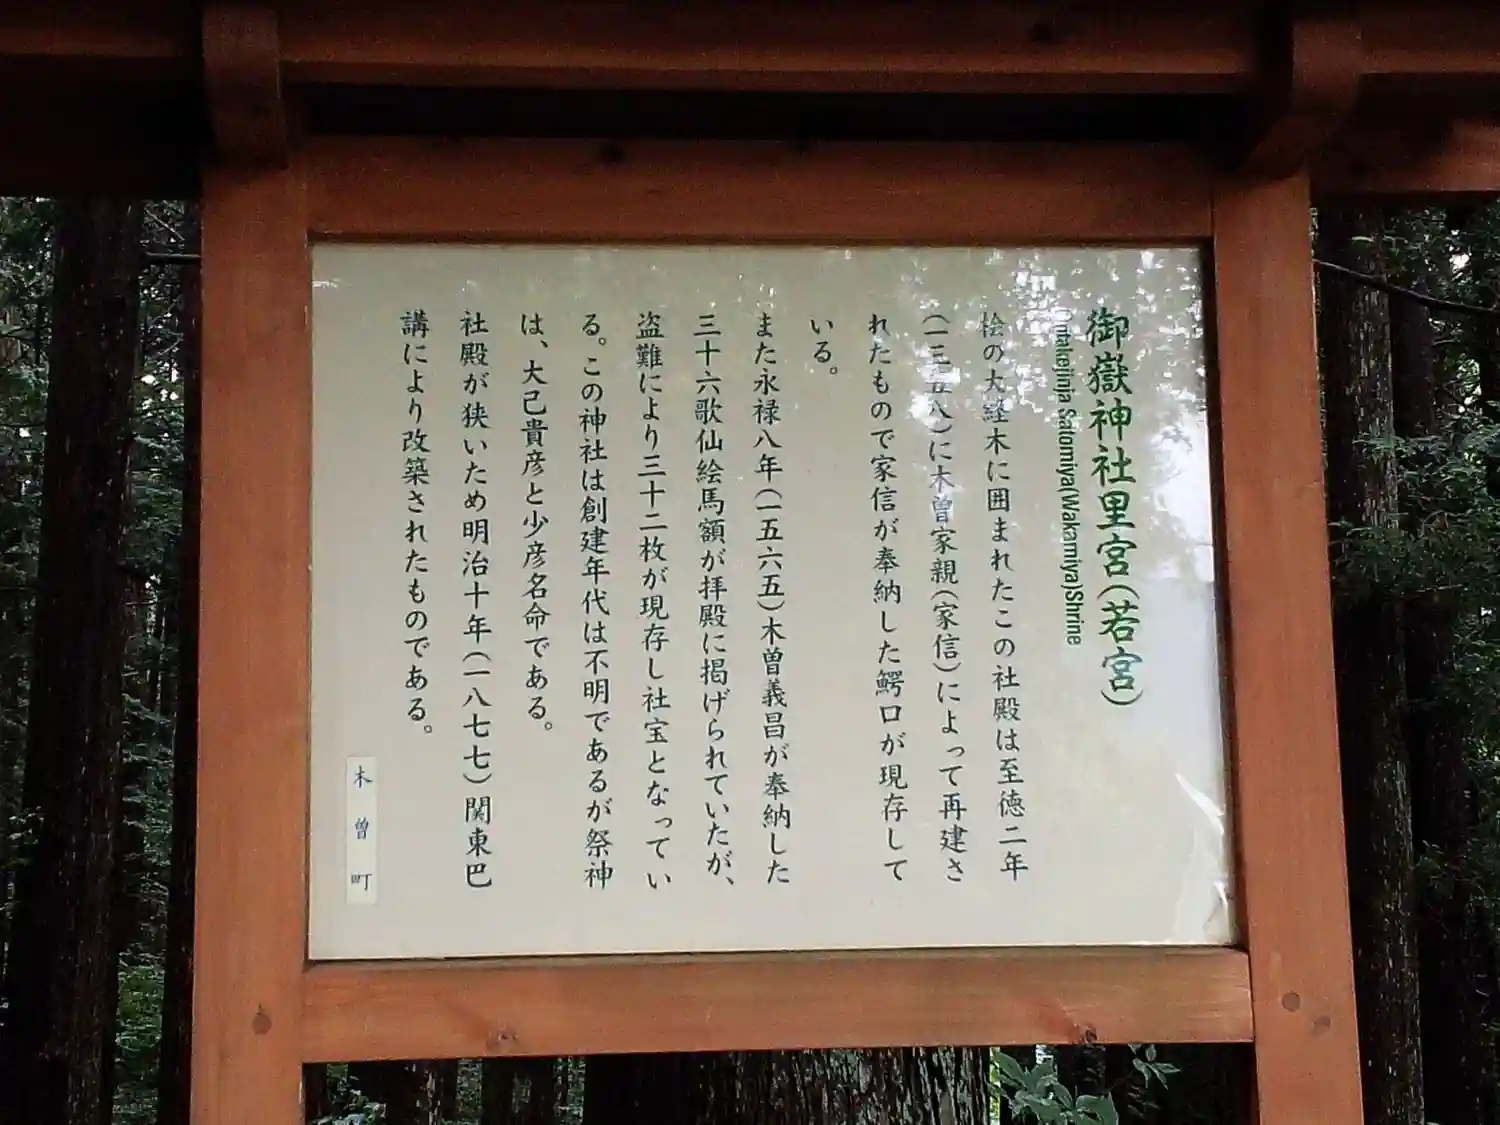 御嶽神社里宮(若宮)
Ontakejinja Satomiya(Wakamiya)Shrine
桧の大経木に囲まれたこの社殿は至徳二年
(一三五八)に木曽家親(家信)によって再建さ
れたもので家信が奉納した鰐口が現存して
いる。
また永禄八年(一五六五)木曽義昌が奉納した
三十六歌仙絵馬額が拝殿に掲げられていたが、
盗難により三十二枚が現存し社宝となってい
る。この神社は創建年代は不明であるが祭神
は、大己貴彦と少彦名命である。
社殿が狭いため明治十年(一八七七)関東巴
講により改築されたものである。
木曽町